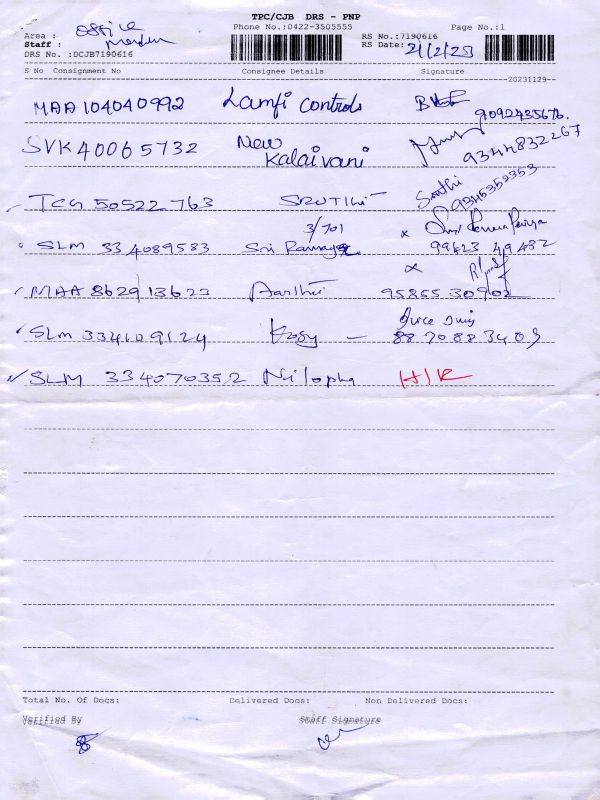 TPC/CJB DRS - PNP
Area : office Phone No.:0422-3505555 Page No.:1
Staff : RS No.:7190616
DRS No. :DCJB7190616 RS Date: 2/12/23
S No Consignment No Consignee Details Signature
20231129--
MAA 104040992 Lamfi Controls 9092435676.
SVK 40065732 New Kalaivani 9344832267
TCG 50522763 SRUTIHI Santhi 9345352353
3/701
SLM 334089583 Sri Ramaya 99423 49482
MAA 862913623 Aarthi 95855 30902
SLM 334109124 88708 83409
SLM 334070352 Nilopha H/R
Total No. Of Docs: Delivered Docs: Non Delivered Docs:
Verified By Staff Signature